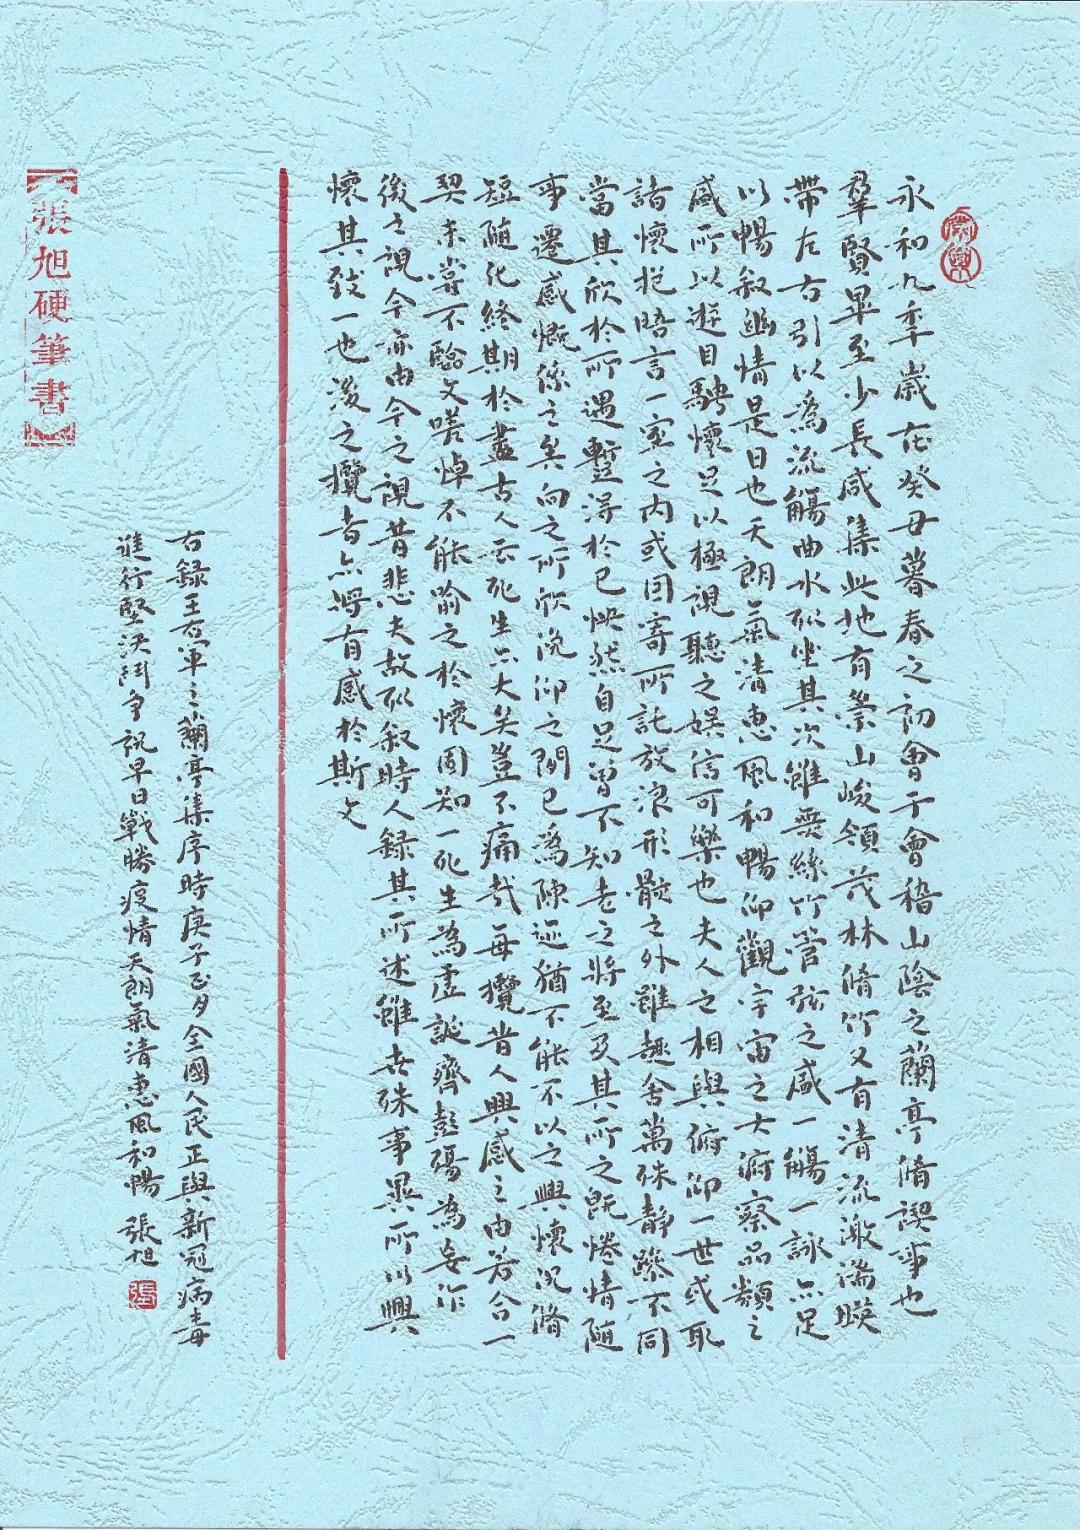 永和九年歲在癸丑暮春之初會于會稽山陰之蘭亭脩禊事也
羣賢畢至少長咸集此地有崇山峻領茂林脩竹又有清流激湍暎
帶左右引以為流觴曲水列坐其次雖無絲竹管弦之盛一觴一詠亦足
以暢敘幽情是日也天朗氣清惠風和暢仰觀宇宙之大俯察品類之
盛所以遊目騁懷足以極視聽之娛信可樂也夫人之相與俯仰一世或取
諸懷抱晤言一室之內或因寄所託放浪形骸之外雖趣舍萬殊靜躁不同
當其欣於所遇蹔得於己怏然自足曾不知老之將至及其所之既惓情隨
事遷感慨係之矣向之所欣俛仰之間已為陳迹猶不能不以之興懷況脩
短隨化終期於盡古人云死生亦大矣豈不痛哉每攬昔人興感之由若合一
契未嘗不臨文嗟悼不能喻之於懷固知一死生為虛誕齊彭殤為妄作
後之視今亦由今之視昔悲夫故列敘時人錄其所述雖世殊事異所以興
懷其致一也後之攬者亦將有感於斯文
右錄王右軍之蘭亭集序時庚子正月全國人民正與新冠病毒
進行堅決鬥爭祝早日戰勝疫情天朗氣清惠風和暢 張旭
張旭硬筆書